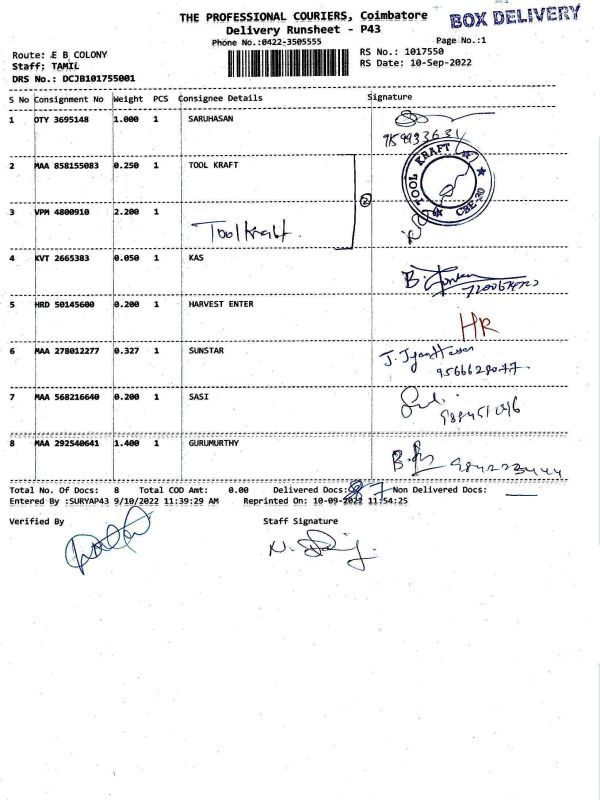 THE PROFESSIONAL COURIERS, Coimbatore
BOX DELIVERY
Delivery Runsheet - P43
Phone No.:0422-3505555
Page No.:1
Route: E B COLONY
RS No.: 1017550
Staff: TAMIL
RS Date: 10-Sep-2022
DRS No.: DCJB101755001
S No Consignment No Weight PCS Consignee Details Signature
1 OTY 3695148 1.000 1 SARUHASAN
2 MAA 858155083 0.250 1 TOOL KRAFT
TOOL KRAFT
CBE-20
2
3 VPM 4800910 2.200 1
Toolkraft.
4 KVT 2665383 0.050 1 KAS
5 HRD 50145600 0.200 1 HARVEST ENTER
HR
6 MAA 278012277 0.327 1 SUNSTAR
9566628077.
7 MAA 568216640 0.200 1 SASI
8 MAA 292540641 1.400 1 GURUMURTHY
Total No. Of Docs: 8 Total COD Amt: 0.00 Delivered Docs: 87 Non Delivered Docs:
Entered By :SURYAP43 9/10/2022 11:39:29 AM Reprinted On: 10-09-2022 11:54:25
Verified By Staff Signature